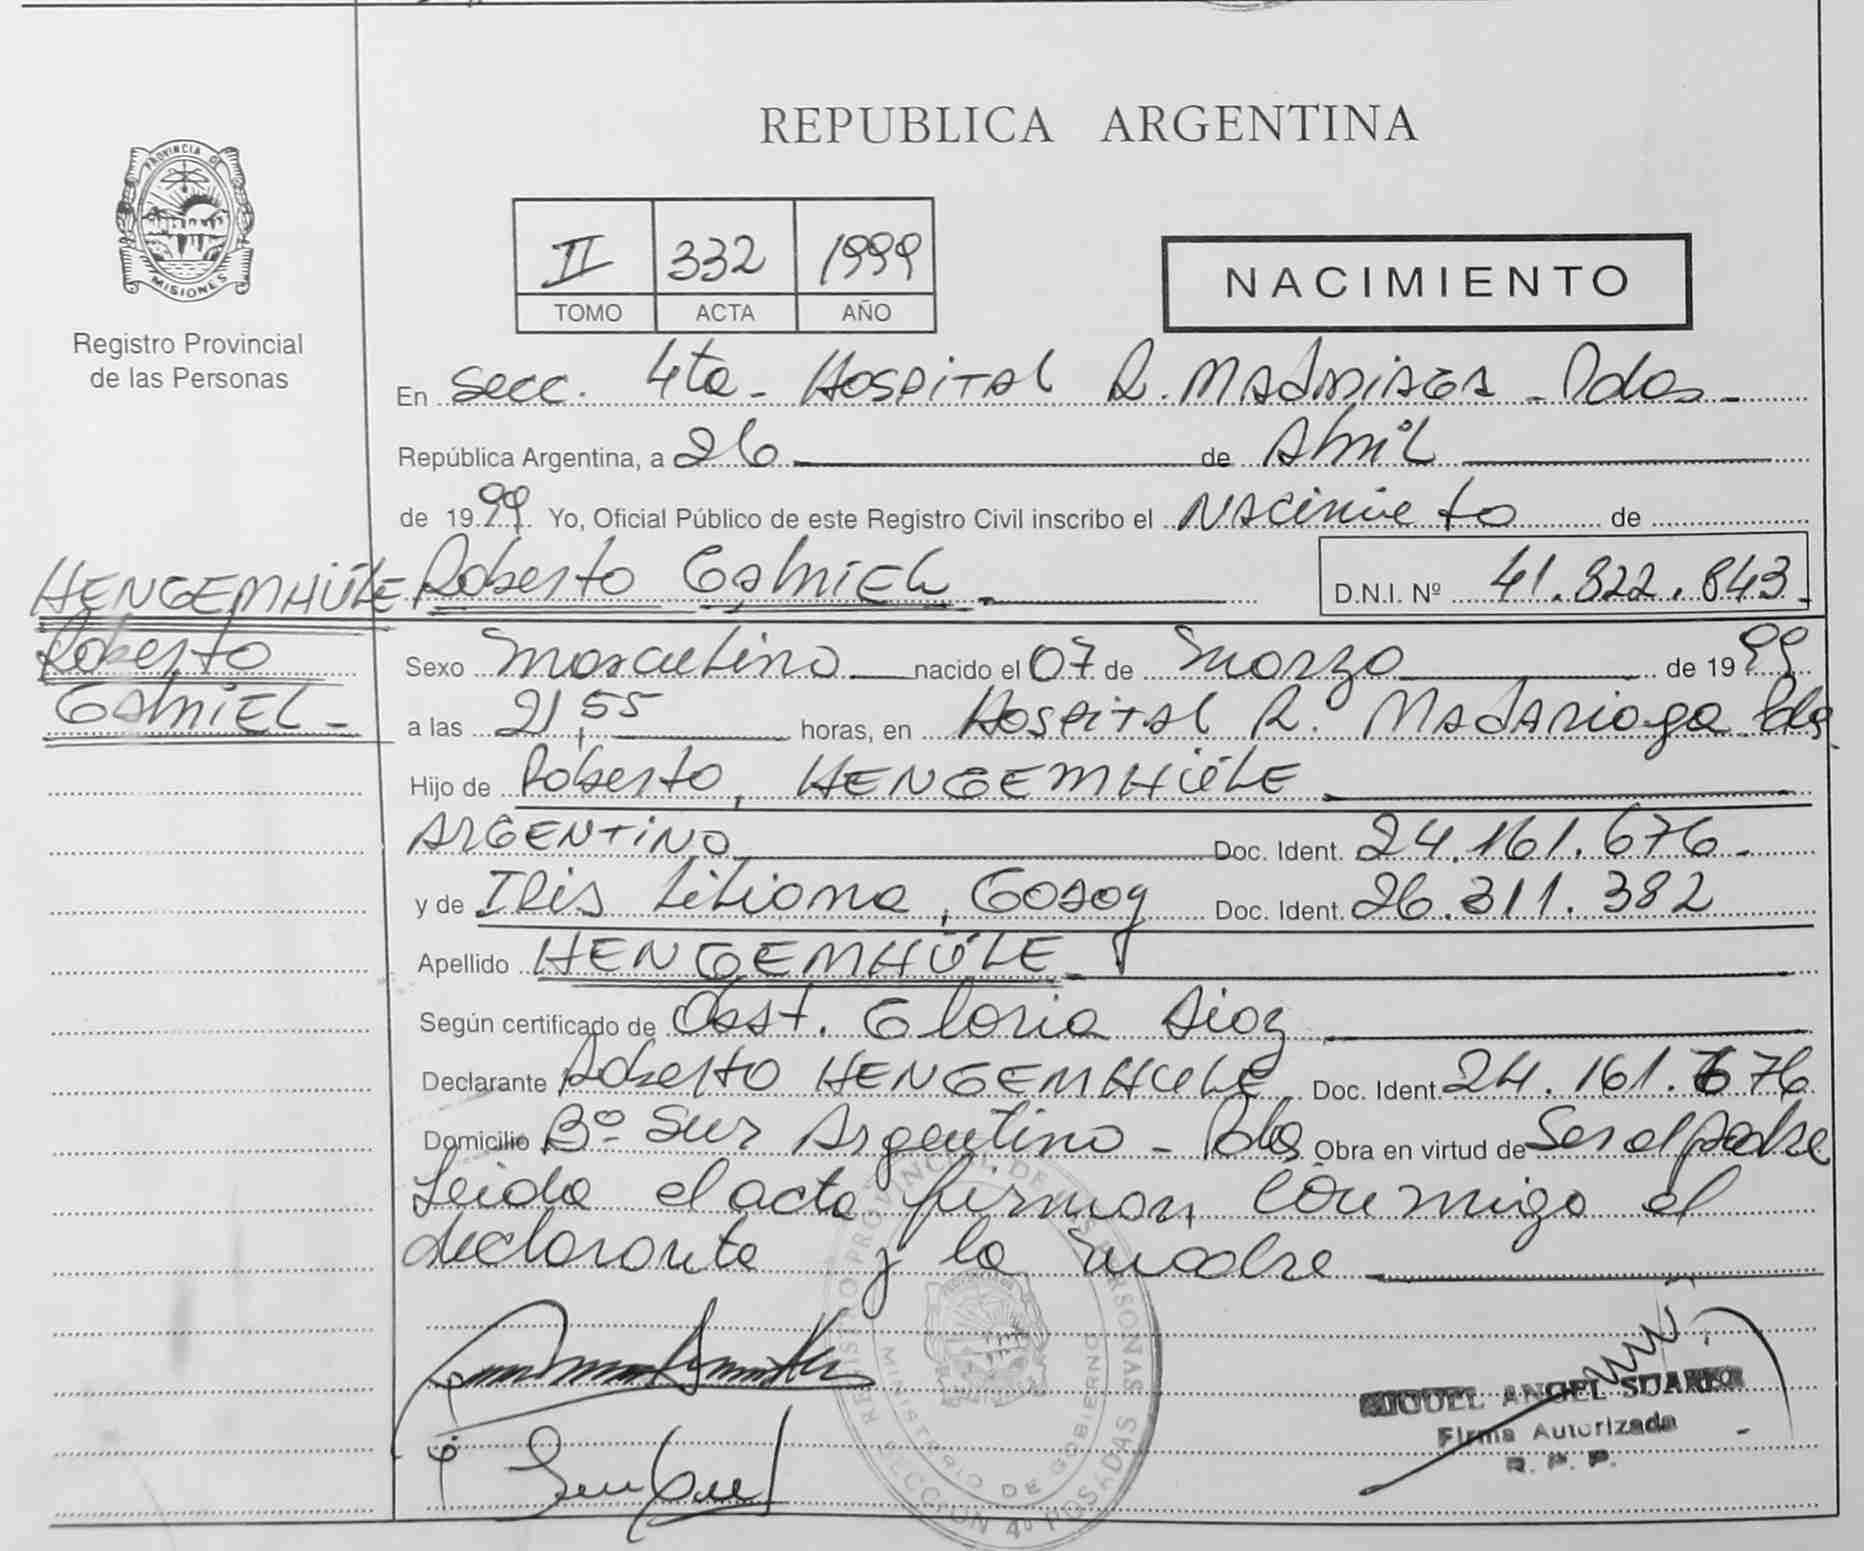 REPUBLICA ARGENTINA
PROVINCIA DE
MISIONES
Registro Provincial
de las Personas
II 332 1999
TOMO ACTA AÑO
NACIMIENTO
En Secc. 4ta - Hospital R. Madariaga - Pdas -
República Argentina, a 26 de Abril
de 1999 Yo, Oficial Público de este Registro Civil inscribo el Nacimieto de
HENGEMHÜLE Roberto Gabriel - D.N.I. Nº 41.822.843 -
Roberto
Gabriel -
Sexo Masculino nacido el 07 de Marzo de 1999
a las 21,55 horas, en Hospital R. Madariaga Pdas.
Hijo de Roberto, HENGEMHÜLE
ARGENTINO Doc. Ident. 24.161.676 -
y de Iris Liliana, Doc. Ident. 26.311.382
Apellido HENGEMHÜLE -
Según certificado de Obst. Gloria Diaz
Declarante Roberto HENGEMHULE Doc. Ident. 24.161.676
Domicilio Bº Sur Argentino - Pdas Obra en virtud de Ser el padre
Leida el acta firman conmigo el
declarante y la madre
REGISTRO PROVINCIAL DE LAS PERSONAS
MINISTERIO DE GOBIERNO
SECCION 4º POSADAS
MIGUEL ANGEL SUAREZ
Firma Autorizada
R. P. P.